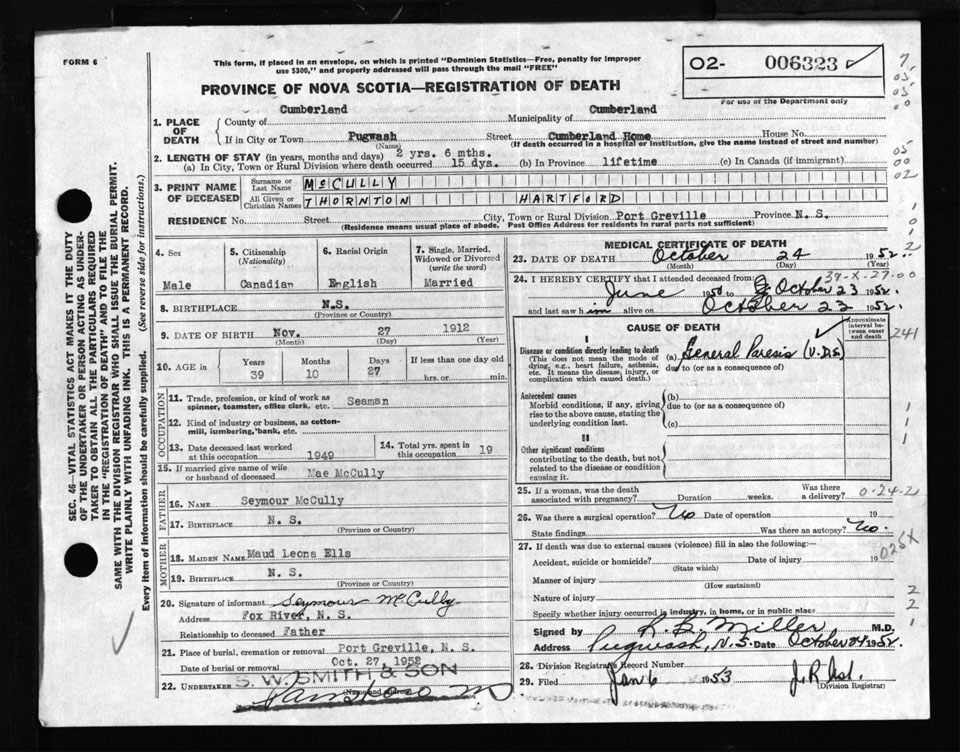 FORM 6
This form, if placed in an envelope, on which is printed "Dominion Statistics—Free, penalty for improper
use $300," and properly addressed will pass through the mail "FREE"
02- 006323 ✓
For use of the Department only
PROVINCE OF NOVA SCOTIA—REGISTRATION OF DEATH
1. PLACE OF DEATH
County of Cumberland Municipality of Cumberland
If in City or Town Pugwash Street Cumberland Home House No.
(Name) (If death occurred in a hospital or institution, give the name instead of street and number)
2. LENGTH OF STAY (in years, months and days) 2 yrs. 6 mths.
(a) In City, Town or Rural Division where death occurred 15 dys. (b) In Province lifetime (c) In Canada (if immigrant)
3. PRINT NAME OF DECEASED
Surname or Last Name McCULLY
All Given or Christian Names THORNTON HARTFORD
RESIDENCE No. Street City, Town or Rural Division Port Greville Province N. S.
(Residence means usual place of abode. Post Office Address for residents in rural parts not sufficient)
4. Sex
Male
5. Citizenship
(Nationality)
Canadian
6. Racial Origin
English
7. Single, Married, Widowed or Divorced
(write the word)
Married
8. BIRTHPLACE N.S.
(Province or Country)
9. DATE OF BIRTH Nov. 27 1912
(Month) (Day) (Year)
10. AGE in
Years Months Days If less than one day old
39 10 27 hrs. or min.
OCCUPATION
11. Trade, profession, or kind of work as
spinner, teamster, office clerk, etc. Seaman
12. Kind of industry or business, as cotton-
mill, lumbering, bank, etc.
13. Date deceased last worked
at this occupation 1949
14. Total yrs. spent in
this occupation 19
15. If married give name of wife
or husband of deceased Mae McCully
FATHER
16. NAME Seymour McCully
17. BIRTHPLACE N. S.
(Province or Country)
MOTHER
18. MAIDEN NAME Maud Leona Ells
19. BIRTHPLACE N. S.
(Province or Country)
20. Signature of informant Seymour McCully
Address Fox River, N. S.
Relationship to deceased Father
21. Place of burial, cremation or removal Port Greville, N. S.
Date of burial or removal Oct. 27, 1952
22. UNDERTAKER S. W. SMITH & SON
(Name and Address)
MEDICAL CERTIFICATE OF DEATH
23. DATE OF DEATH October 24 1952.
(Month) (Day) (Year)
39-X-27-00
24. I HEREBY CERTIFY that I attended deceased from:
June 1950 to October 23 1952.
and last saw him alive on October 23 1952.
CAUSE OF DEATH
Approximate interval between onset and death
I
Disease or condition directly leading to death
(This does not mean the mode of
dying, e.g., heart failure, asthenia,
etc. It means the disease, injury, or
complication which caused death.)
(a) General Paresis (V.DIS)
due to (or as a consequence of)
241
Antecedent causes
Morbid conditions, if any, giving
rise to the above cause, stating the
underlying condition last.
(b)
due to (or as a consequence of)
(c)
II
Other significant conditions
contributing to the death, but not
related to the disease or condition
causing it.
25. If a woman, was the death
associated with pregnancy? Duration weeks. Was there
a delivery?
0-24-2
26. Was there a surgical operation? No Date of operation 19
State findings Was there an autopsy? No.
27. If death was due to external causes (violence) fill in also the following:—
025X
Accident, suicide or homicide? Date of injury 19
(State which)
Manner of injury
(How sustained)
Nature of injury
Specify whether injury occurred in industry, in home, or in public place
Signed by R. B. Miller M.D.
Address Pugwash, N.S. Date October 24 1952.
28. Division Registrar's Record Number
29. Filed Jan 6 1953
(Division Registrar)
SEC. 46—VITAL STATISTICS ACT MAKES IT THE DUTY
OF THE UNDERTAKER OR PERSON ACTING AS UNDER-
TAKER TO OBTAIN ALL THE PARTICULARS REQUIRED
IN THE "REGISTRATION OF DEATH" AND TO FILE THE
SAME WITH THE DIVISION REGISTRAR WHO SHALL ISSUE THE BURIAL PERMIT.
WRITE PLAINLY WITH UNFADING INK. THIS IS A PERMANENT RECORD.
Every item of information should be carefully supplied. (See reverse side for instructions.)